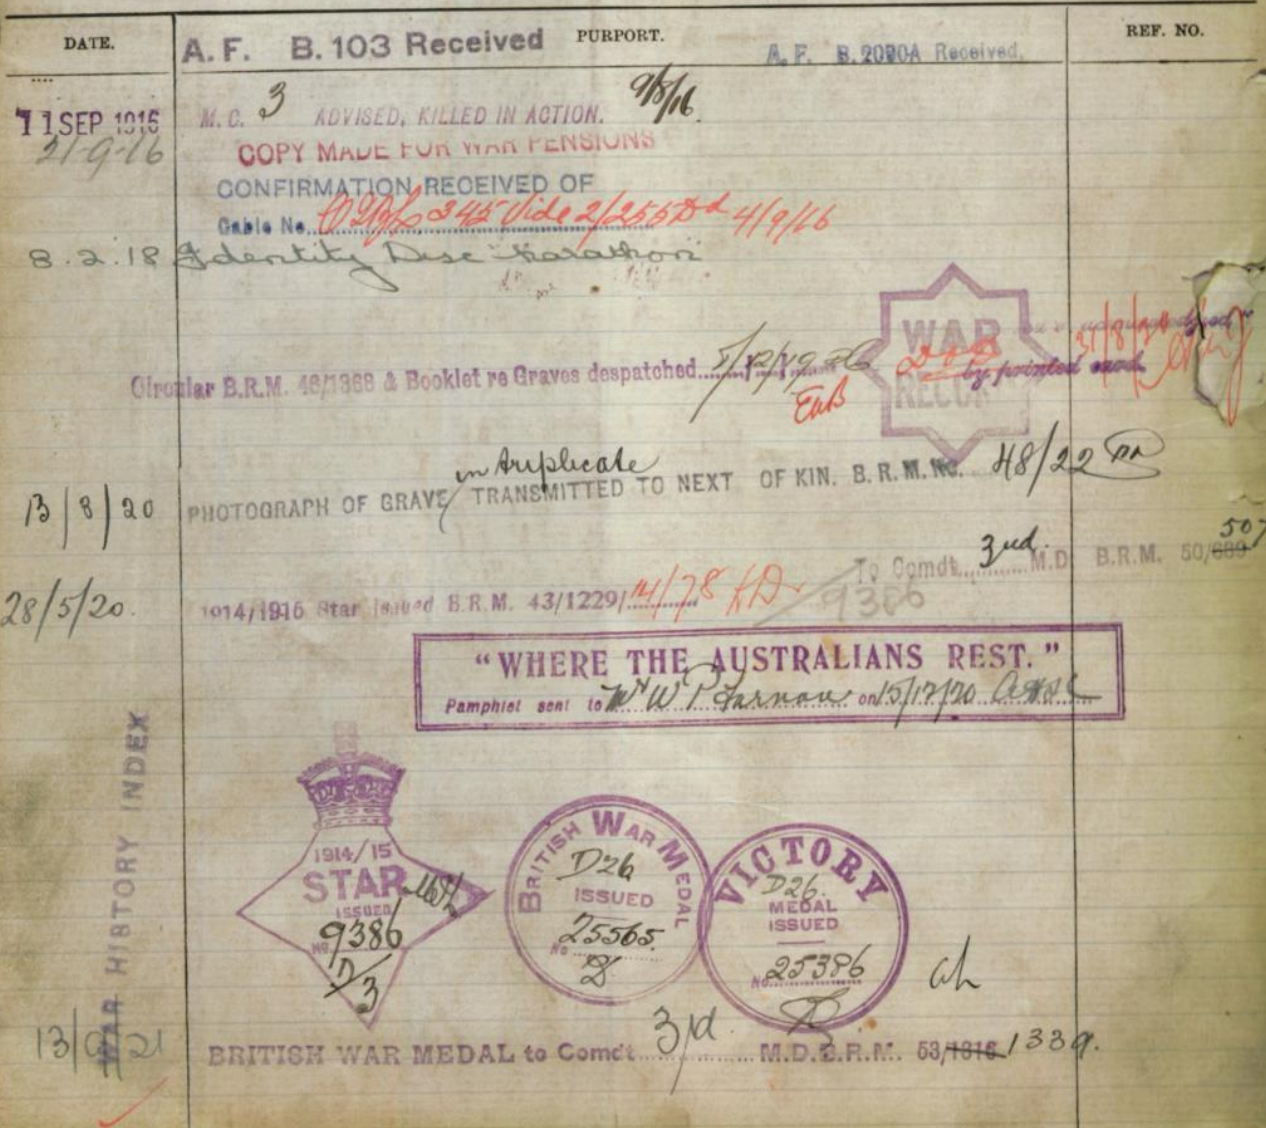 DATE. PURPORT. REF. NO.
A. F. B. 103 Received A. F. B. 2090A Received.
11 SEP 1916 M. C. 3 ADVISED, KILLED IN ACTION. 9/8/16.
21-9-16 COPY MADE FOR WAR PENSIONS
CONFIRMATION RECEIVED OF
Cable No. 345 Vide 2/255 4/9/16
8.2.18 Identity Disc "Marathon"
WAR
Circular B.R.M. 46/1368 & Booklet re Graves despatched by printed
31/8/
RECOR
EWB
in triplicate
13/8/20 PHOTOGRAPH OF GRAVE TRANSMITTED TO NEXT OF KIN. B. R. M. No. 48/22
507
To Comdt. 3rd. M.D. B.R.M. 50/689
28/5/20. 1914/1915 Star issued B.R.M. 43/1229/ 14/78 9386
"WHERE THE AUSTRALIANS REST."
Pamphlet sent to Mr W P Farnon on 15/12/20
WAR HISTORY INDEX
1914/15
STAR
ISSUED
No 9386
D/3
BRITISH WAR MEDAL
D26
ISSUED
No 25565.
VICTORY
D26.
MEDAL
ISSUED
No 25386
13/9/21 BRITISH WAR MEDAL to Comd't 3rd. M.D.B.R.M. 53/1316 1339.